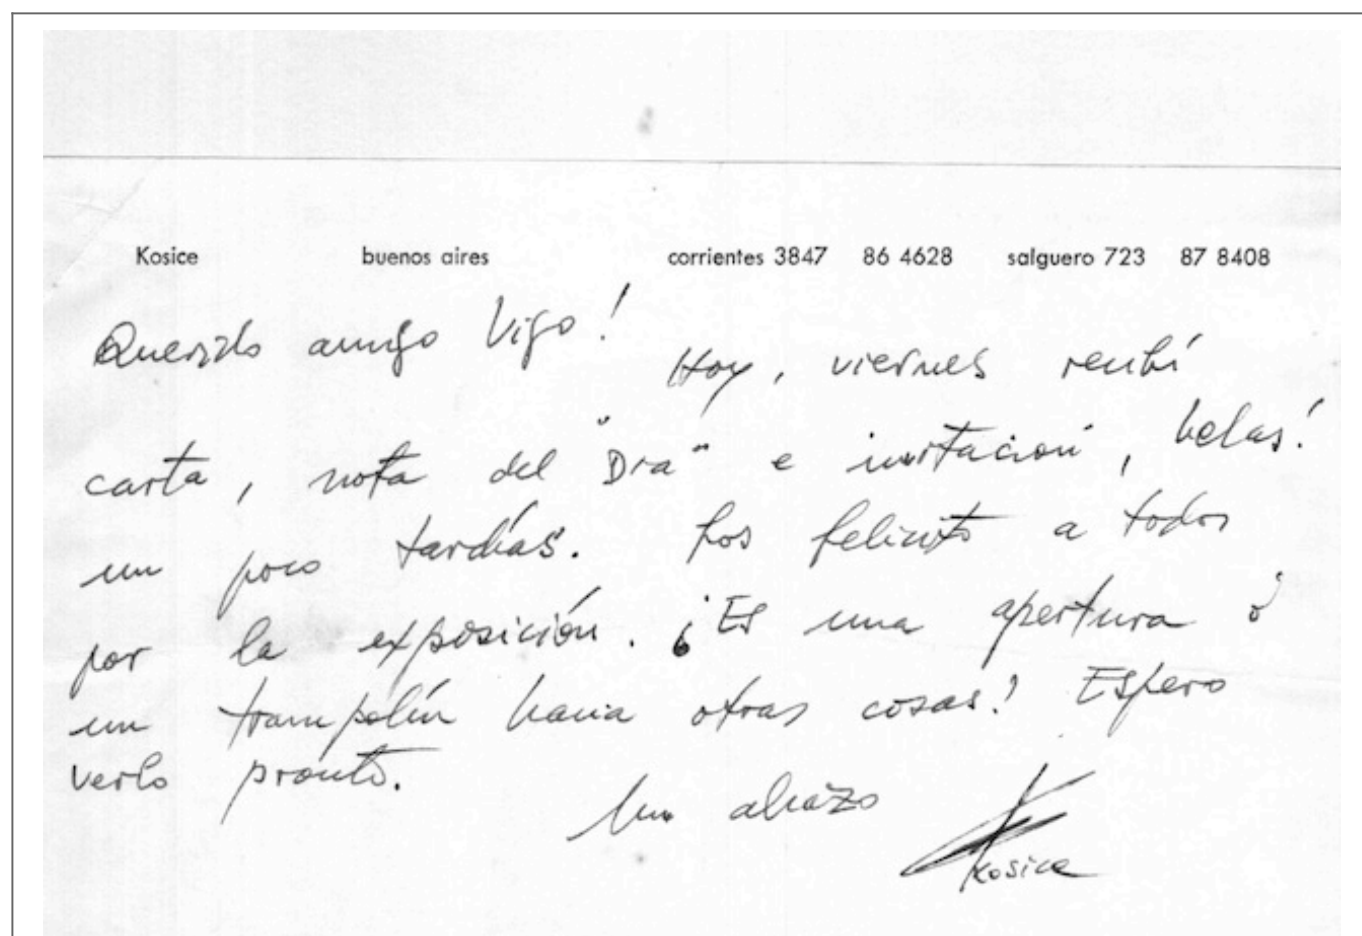 Kosice buenos aires corrientes 3847 86 4628 salguero 723 87 8408
Querido amigo Vigo!
Hoy, viernes recibí
carta, nota del "Dia" e invitación, helas!
un poco tardías. Los felicito a todos
por la exposición. ¿Es una apertura ó
un trampolín hacia otras cosas? Espero
verlo pronto.
Un abrazo
Kosice